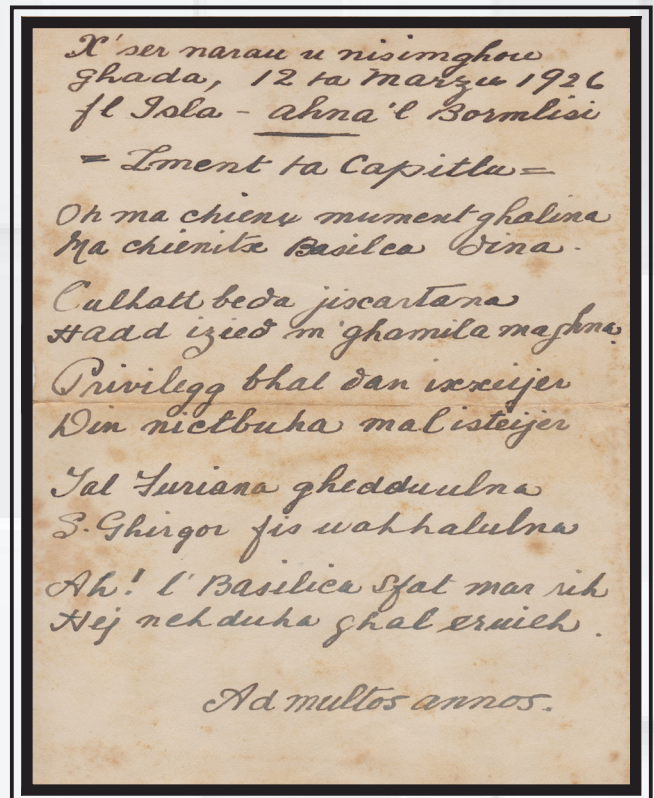 X'ser narau u nisimghou
ghada, 12 ta Marzu 1926
fl Isla - ahna'l Bormlisi
= Lment ta Capitlu =
Oh ma chienx mument ghalina
Ma chienitx Basilca dina.
Culhatt beda jiscartana
Hadd izied m'ghamila maghna.
Privilegg bhal dan ixxeijer
Din nictbuha mal isteijer
Tal Furiana ghedduulna
S. Ghirgor fis wahhalulna
Ah! l'Basilica Sfat mar rih
Hej nehduha ghal eruieh.
Ad multos annos.